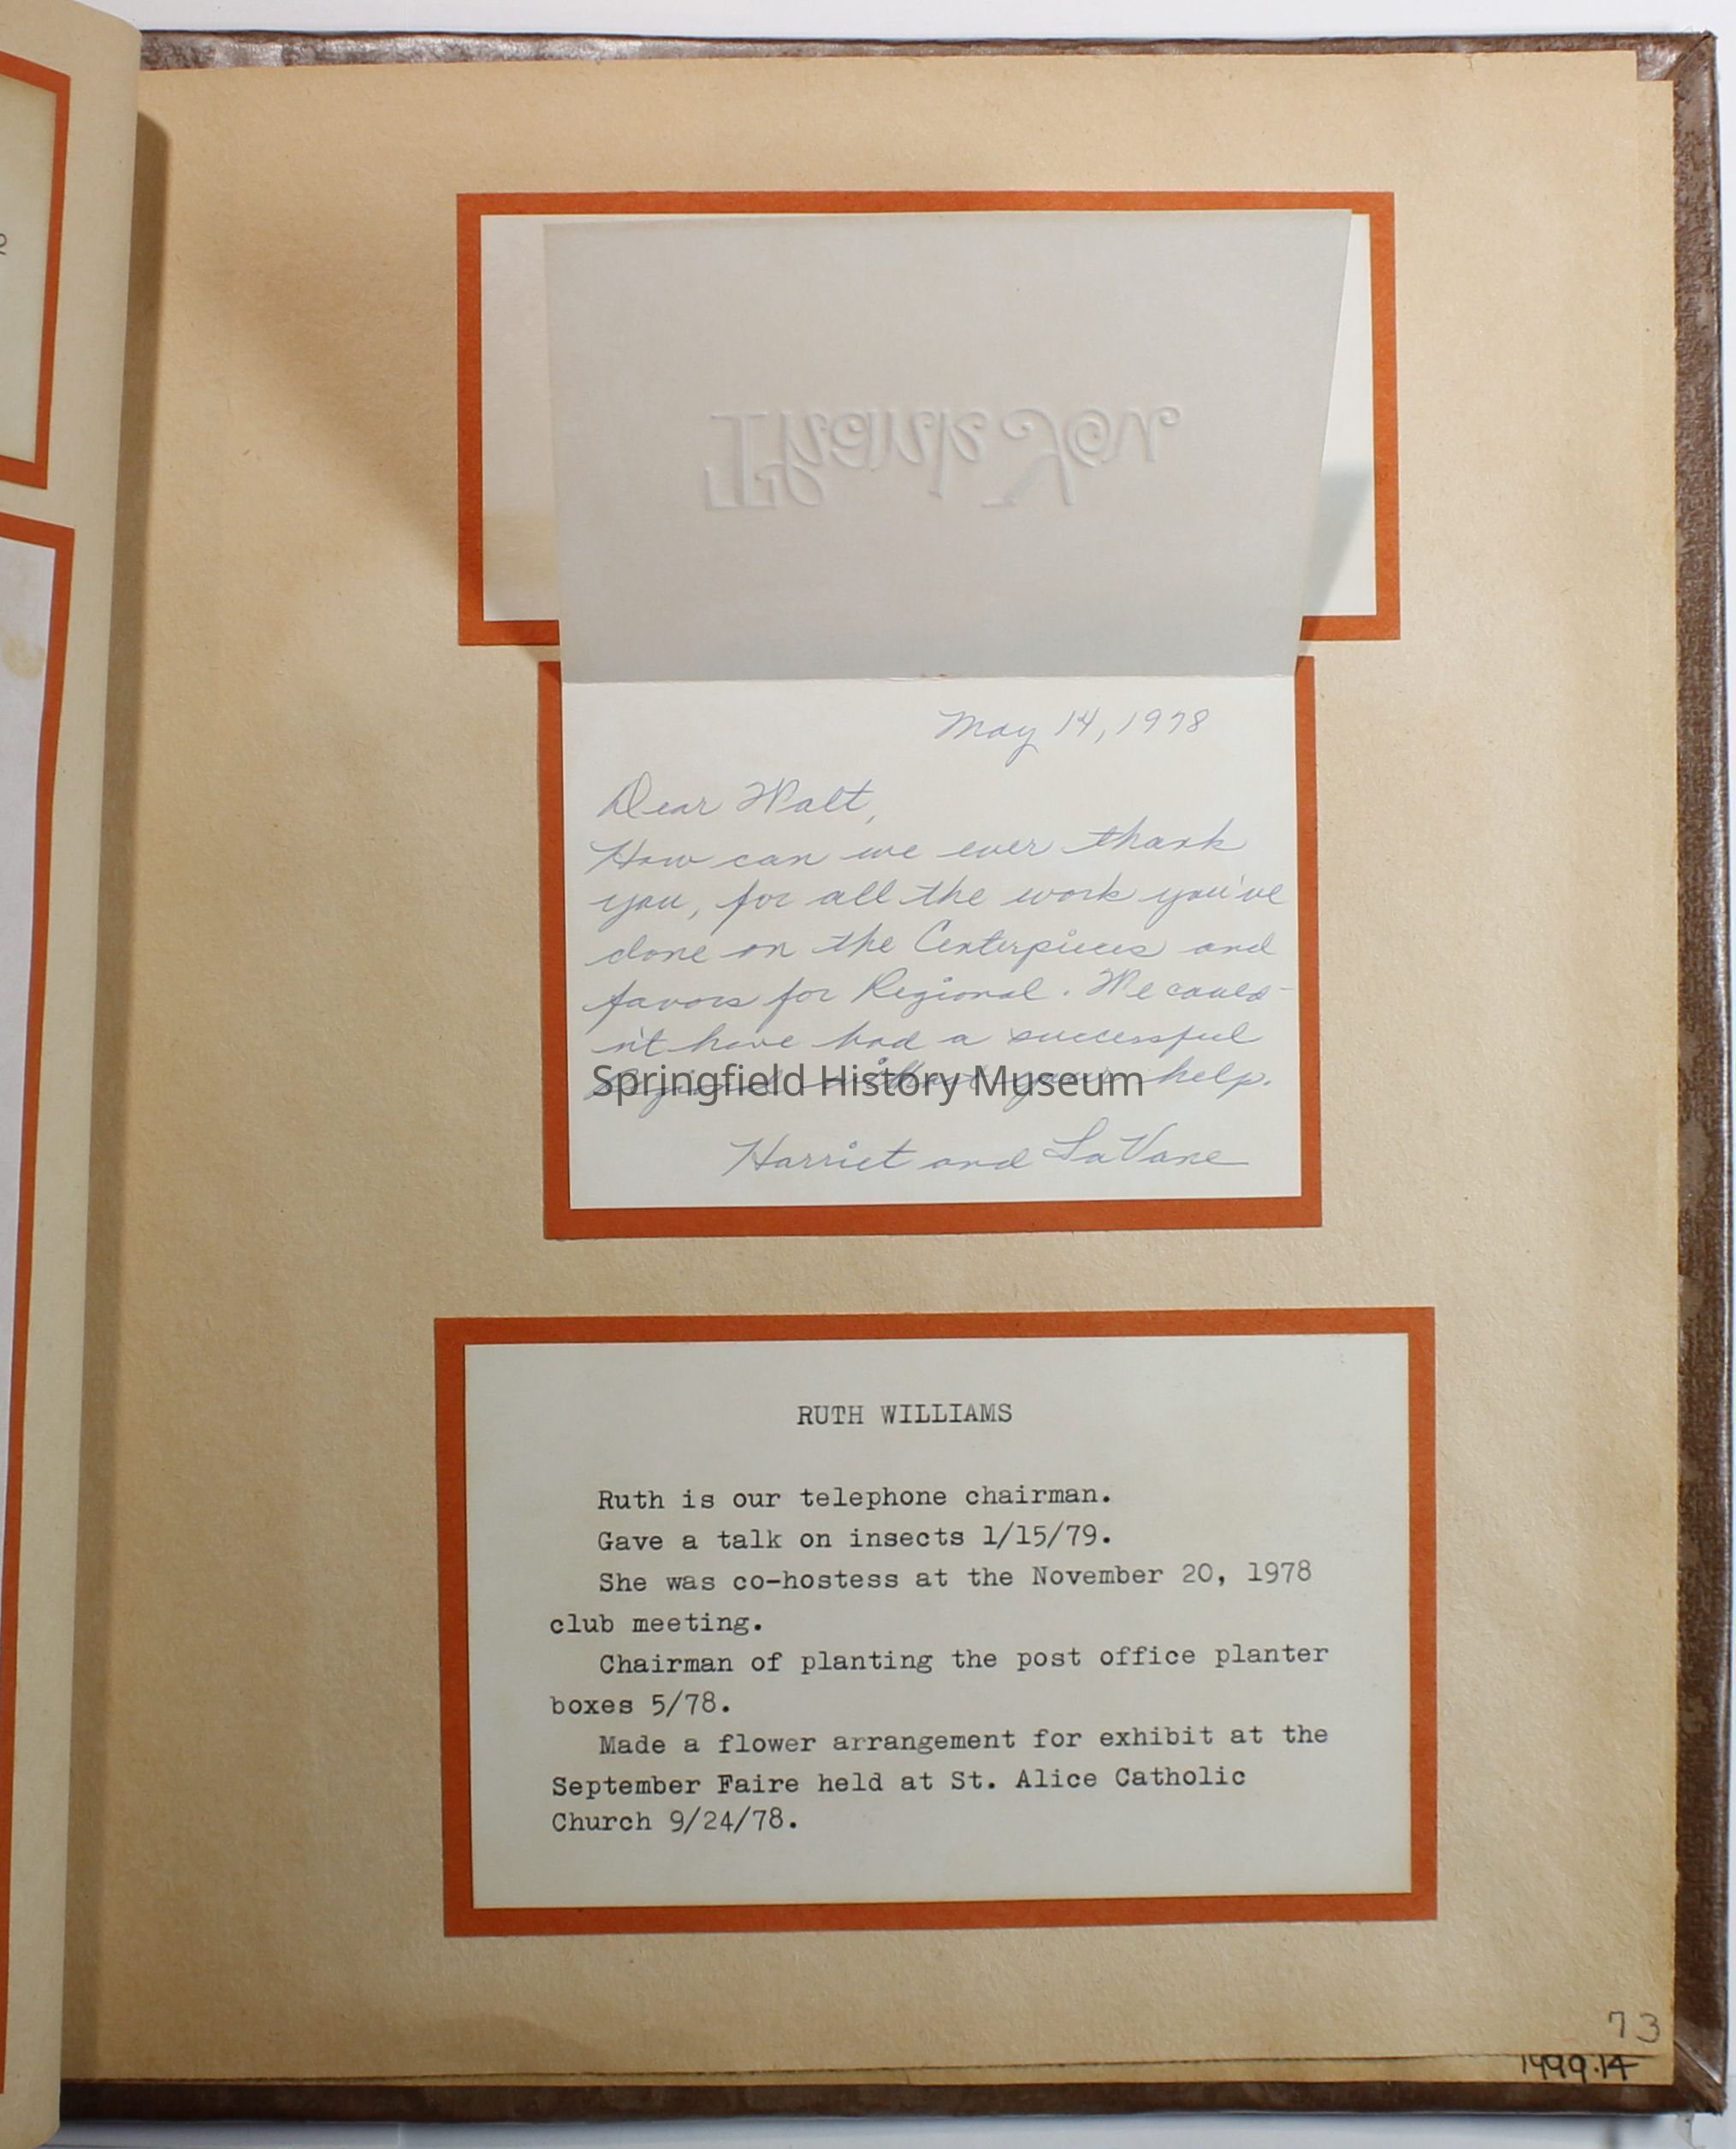 Thank You
May 14, 1978
Dear Walt,
How can we ever thank
you, for all the work you've
done on the Centerpieces and
favors for Regional. We could-
n't have had a successful
Regional without your help.
Springfield History Museum
Harriet and LaVane
RUTH WILLIAMS
Ruth is our telephone chairman.
Gave a talk on insects 1/15/79.
She was co-hostess at the November 20, 1978
club meeting.
Chairman of planting the post office planter
boxes 5/78.
Made a flower arrangement for exhibit at the
September Faire held at St. Alice Catholic
Church 9/24/78.
73
1999.14